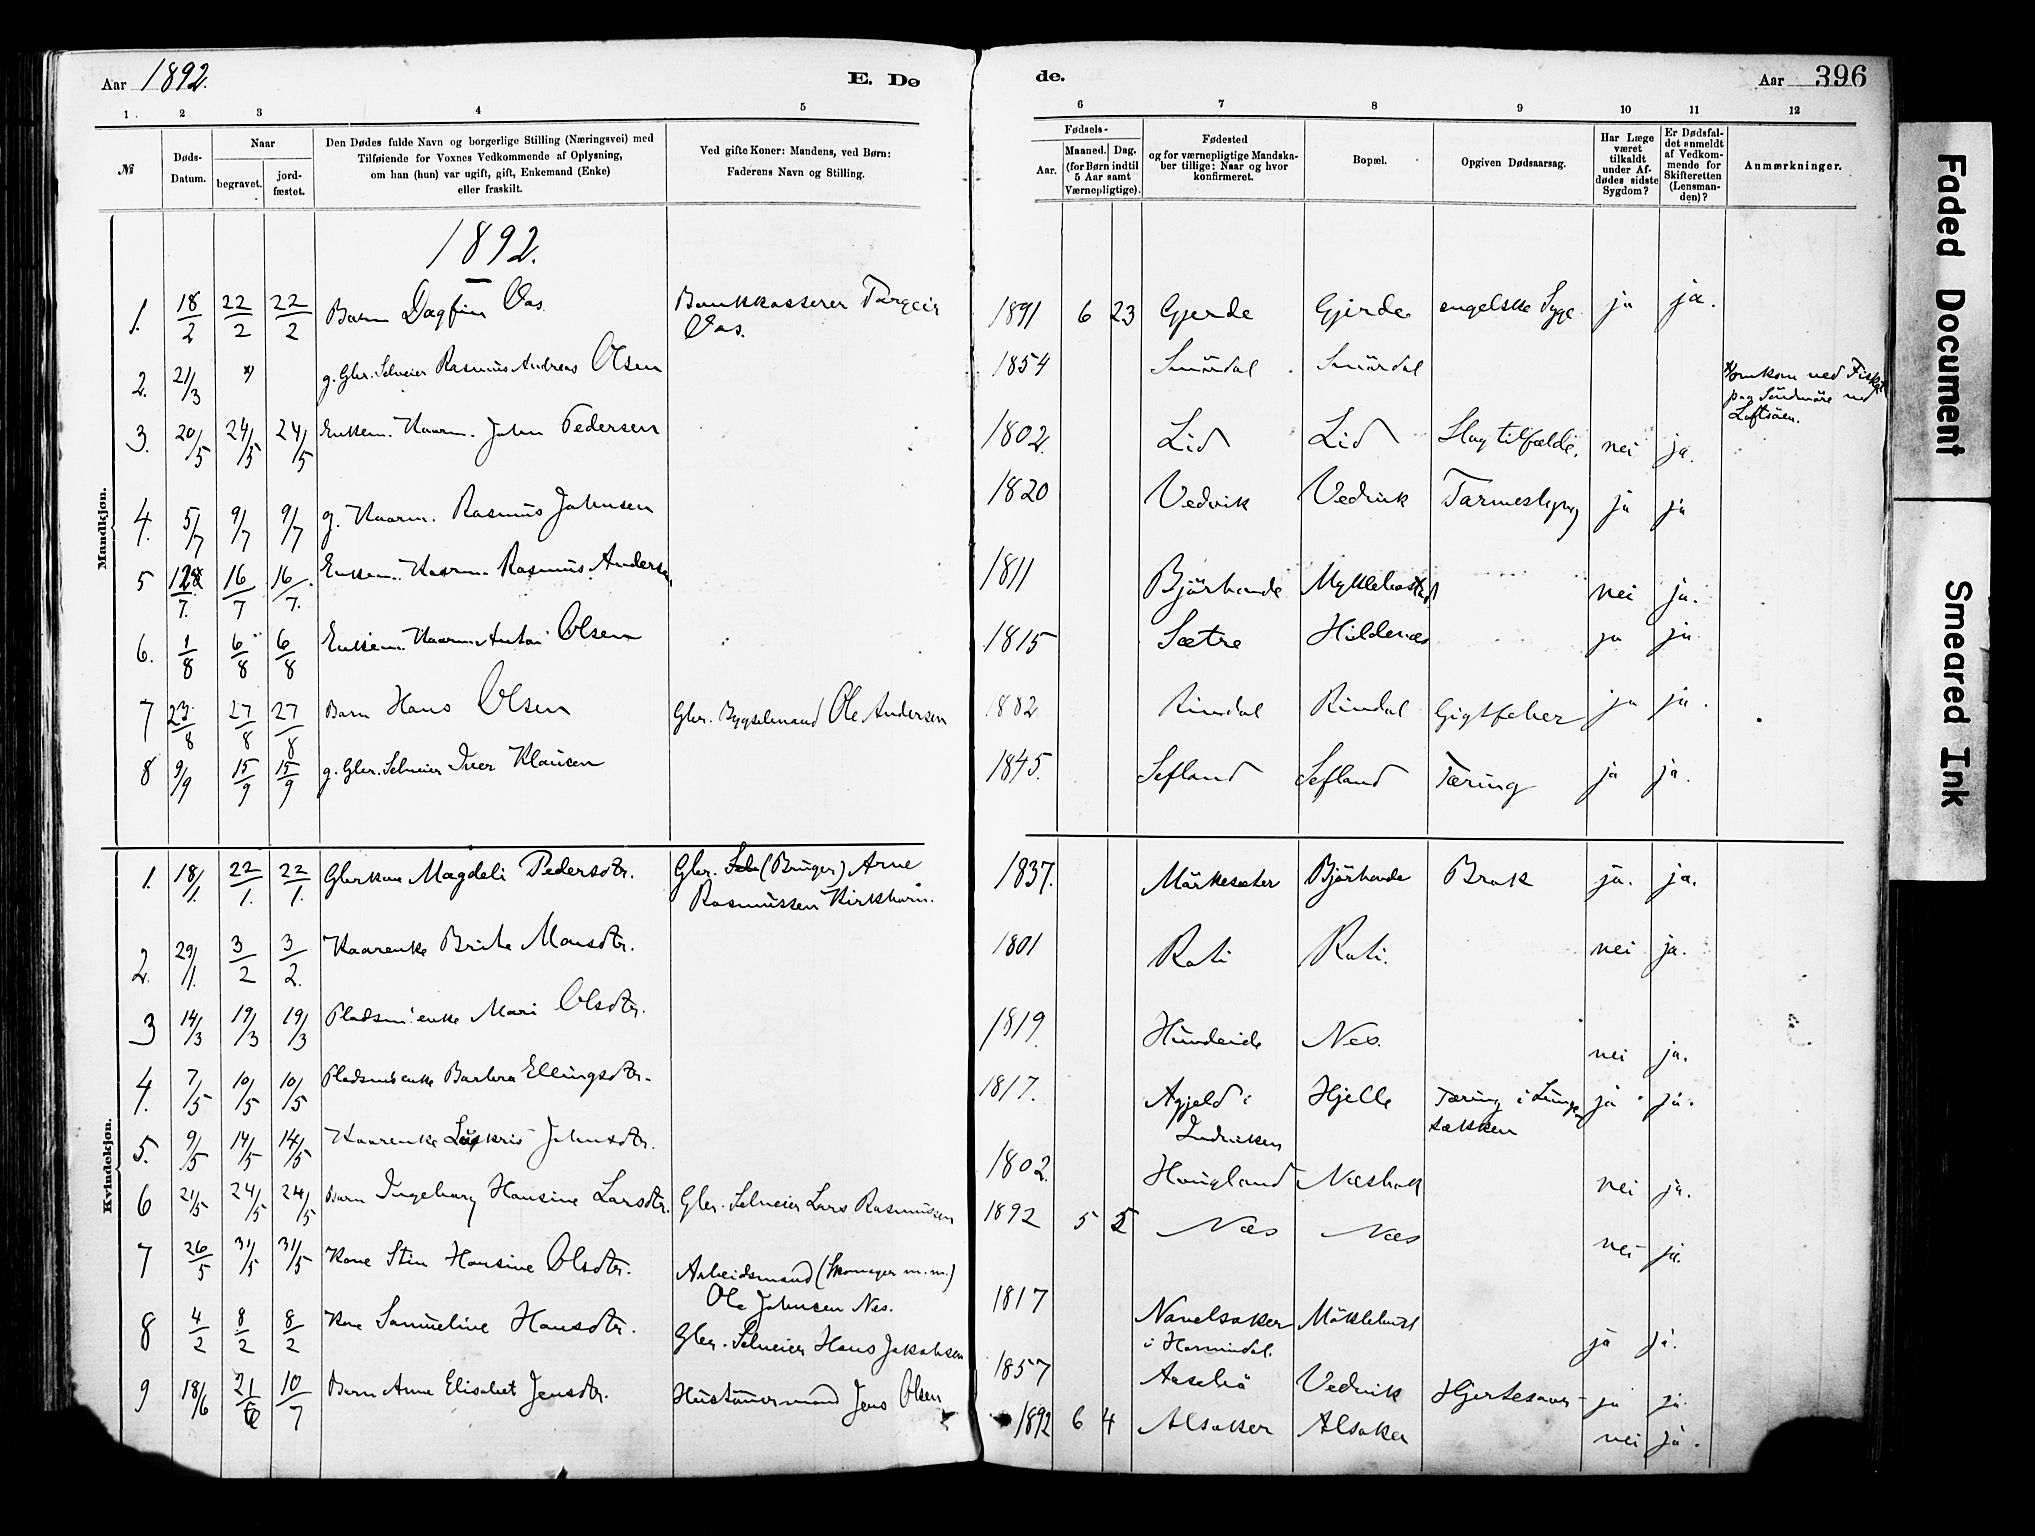 Aar 1892.
E. Dø
de.
Aar 396
1. 2 3 4 5
6 7 8 9 10 11 12
№
Døds-
Datum.
Naar
begravet.
jord-
fæstet.
Den Dødes fulde Navn og borgerlige Stilling (Næringsvei) med
Tilføiende for Voxnes Vedkommende af Oplysning,
om han (hun) var ugift, gift, Enkemand (Enke)
eller fraskilt.
Ved gifte Koner: Mandens, ved Børn:
Faderens Navn og Stilling.
Fødsels-
Aar.
Maaned. Dag.
(for Børn indtil
5 Aar samt
Værnepligtige).
Fødested
og for værnepligtige Mandska-
ber tillige: Naar og hvor
konfirmeret.
Bopæl.
Opgiven Dødsaarsag.
Har Læge
været
tilkaldt
under Af-
dødes sidste
Sygdom?
Er Dødsfal-
det anmeldt
af Vedkom-
mende for
Skifteretten
(Lensman-
den)?
Anmærkninger.
Mandkjøn.
1892.
1. 18/2 22/2 22/2 Barn Dagfin Aas. Bankkasserer Torgeir 1891 6 23 Gjerde Gjerde engelske Syge ja ja.
Aas.
2. 21/3 *) g. Gbr. Selveier Rasmus Andreas Olsen 1854 Smördal Smördal *) omkom ved Fiske
paa Söndmöre ved
3. 20/5 24/5 24/5 Enkem. Kaarm. John Pedersen 1802. Lid Lid Slagtilfælde. nei ja.
4. 5/7 9/7 9/7 g. Kaarm. Rasmus Johnsen 1820 Vedvik Vedvik ja ja
5 16/7 16/7. Enkem. Kaarm. Rasmus Andersen 1811 Björhovde Myklebost nei ja.
6. 1/8 6/8 6/8 Enkem. Kaarm. Anton Olsen 1815 Sætre Hildenæs ja ja.
7 23/8 27/8 27/8 Barn Hans Olsen Gbr. Bygselmand Ole Andersen 1882 Rimdal Rimdal Gigtfeber ja ja.
8 9/9 15/9 15/9 g. Gbr. Selveier Iver Klausen 1845. Sefland Sefland Tæring ja ja.
Kvindekjøn.
1. 18/1. 22/1. 22/1. Gbrkone Magdeli Pedersdtr. Gbr. (Bruger) Arne 1837. Mörkesæter Björhovde Brok ja. ja.
Rasmussen Kirkhorn.
2. 29/1. 3/2 3/2. Kaarenke Brite Monsdtr. 1801 Roti Roti. nei ja.
3 14/3 19/3 19/3 Pladsm.enke Mari Olsdtr. 1819. Hundeide Nes. nei ja.
4. 7/5 10/5 10/5 Pladsm.enke Barbra Ellingsdtr. 1817. Hjelle Tæring i Lunge- ja ja.
sækken
5. 9/5 14/5 14/5 Kaarenke Johnsdtr. 1802. Hougland Næsbak nei ja.
6 21/5 24/5 24/5 Barn Ingeborg Hansine Larsdtr. Gbr. Selveier Lars Rasmussen 1892 5 5 Næs Næs nei ja.
7 26/5 31/5 31/5 Kone Stin Hansine Olsdtr. Arbeidsmand (Skomager m.m.) 1817 Navelsaker ja ja.
Ole Johnsen Nes. i Hornindal.
8 4/2 8/2 8/2 Kone Samueline Hansdtr. Gbr. Selveier Hans Jakobsen 1857 Vedvik ja ja.
9 18/6 21/6 10/7 Barn Anne Elisabet Jensdtr. Hustömermand Jens Olsen 1892 6 4 Alsaker Alsaker nei ja.
Faded Document
Smeared Ink